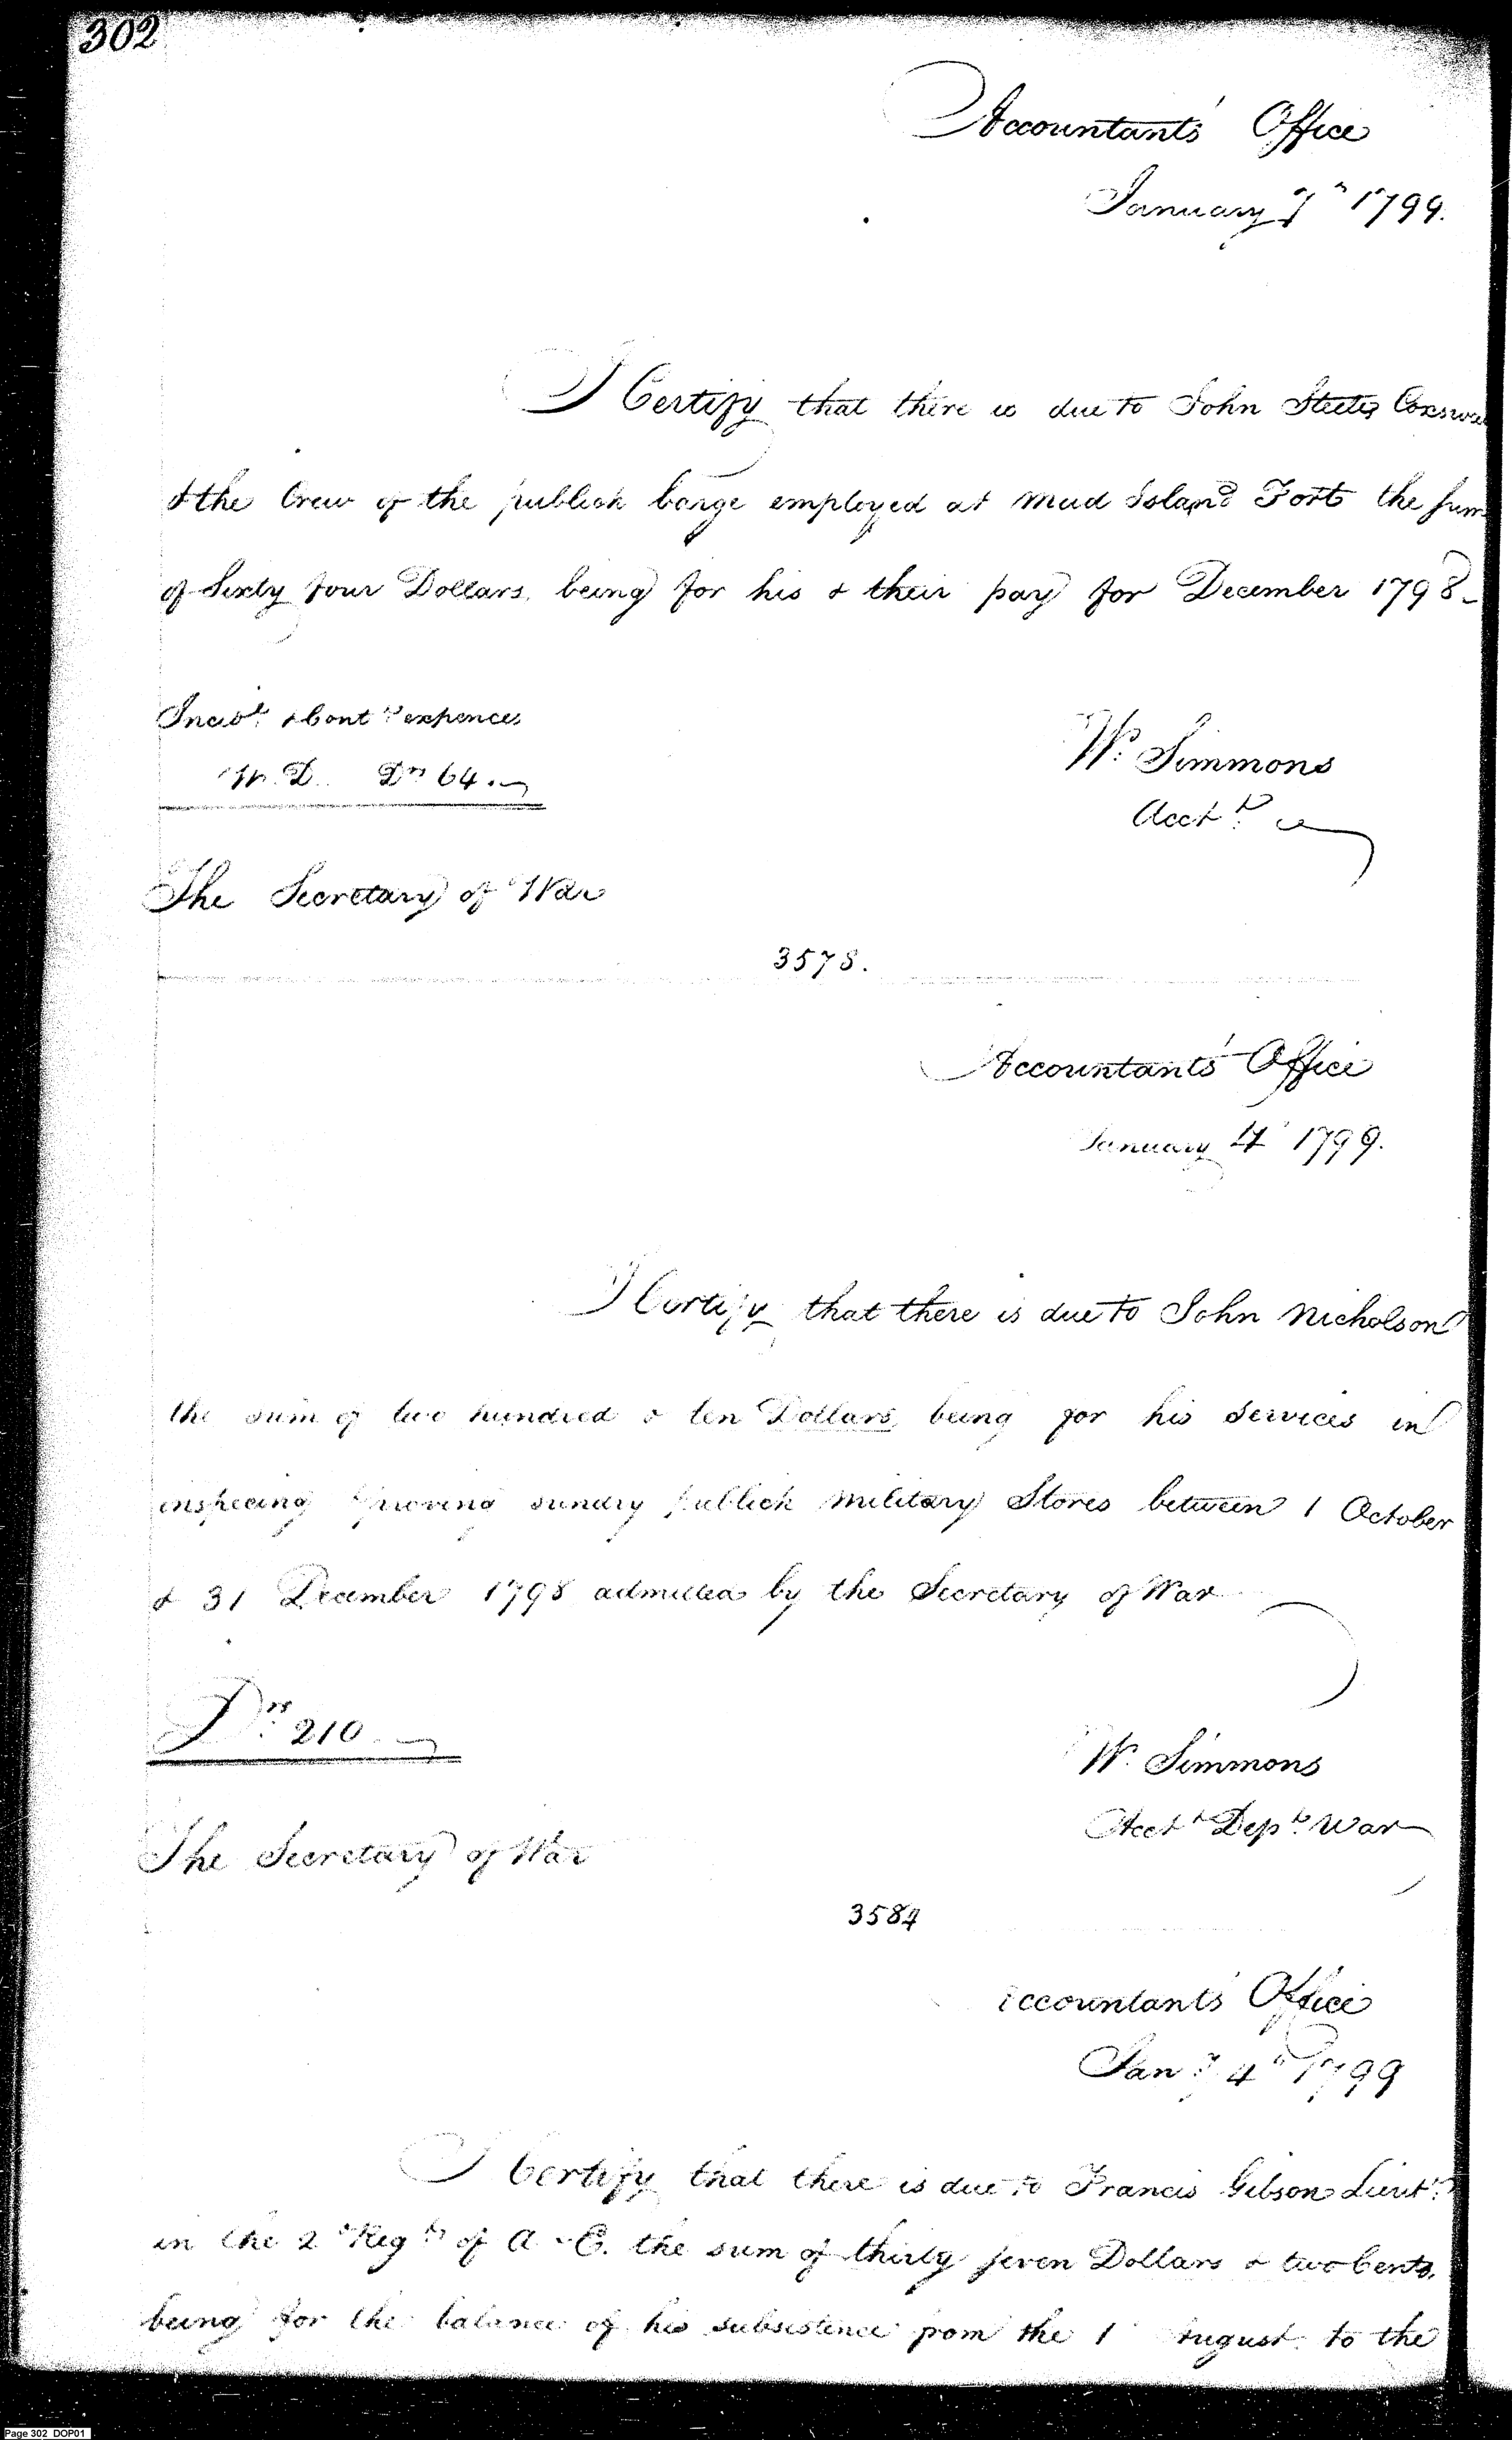 302
Accountants' Office
January 7th 1799.
I Certify that there is due to John Steeter Coxswa
& the Crew of the publick barge employed at Mud Island Fort the sum
of Sixty four Dollars, being for his & their pay for December 1798 -
Incidl. & Contt. expences
W. D. Drs 64. -
Wm. Simmons
Acctt.
The Secretary of War
3578.
Accountants' Office
January 4 1799.
I Certify that there is due to John Nicholson
the sum of two hundred & ten Dollars, being for his services in
inspecing & proving sundry publick Military Stores between 1 October
& 31 December 1798 admitted by the Secretary of War
Drs. 210. -
W. Simmons
Acctt Dept. War
The Secretary of War
3584
Accountants' Office
Jany. 4th 1799
I Certify that there is due to Francis Gibson Lieutt.
in the 2d Regt. of A & E. the sum of thirty seven Dollars & two Cents.
being for the balance of his subsistence from the 1 August to the
Page 302 DOP01